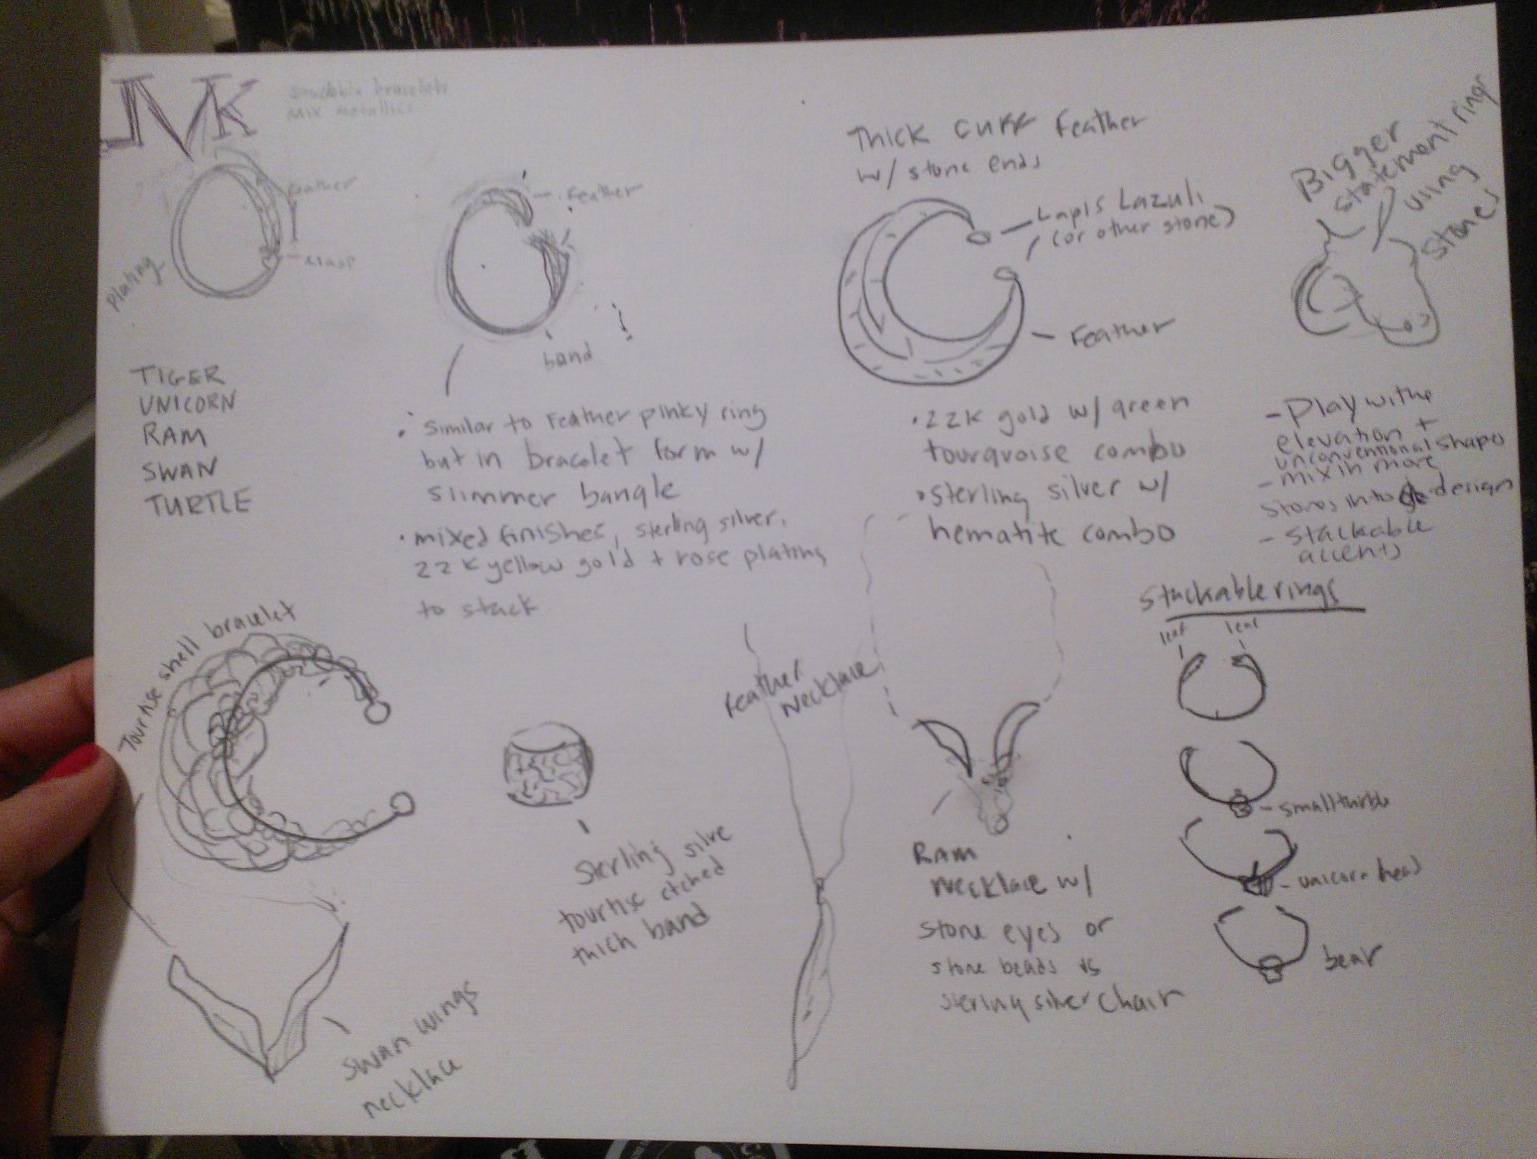 JVK
Stackable bracelets
Mix metallics
feather
clasp
Plating
Feather
band
Thick cuff feather
w/ stone ends
Lapis Lazuli
(or other stone)
Feather
Bigger
statement rings
using
stones
TIGER
UNICORN
RAM
SWAN
TURTLE
• similar to feather pinky ring
but in bracelet form w/
slimmer bangle
• mixed finishes, sterling silver,
22k yellow gold + rose plating
to stack
• 22k gold w/ green
tourquoise combo
• sterling silver w/
hematite combo
- Play with
elevation +
unconventional shapes
- mix in more
stones into design
- stackable
accents
Tourtise shell bracelet
sterling silve
tourtise etched
thich band
swan wings
necklace
Feather
necklace
RAM
necklace w/
stone eyes or
stone beads vs
sterling silver chair
Stackable rings
leaf
leaf
- small turtle
- unicorn head
bear